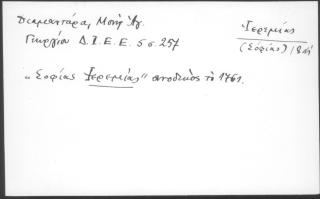 Διαμαντάρα, Μονή Ἁγ.
Γεωργίου Δ.Ι.Ε.Ε. 5 σ. 257
Ἱερεμίας
(Σόφίας)
"Σοφίας Ἱερεμίας" το 1761.